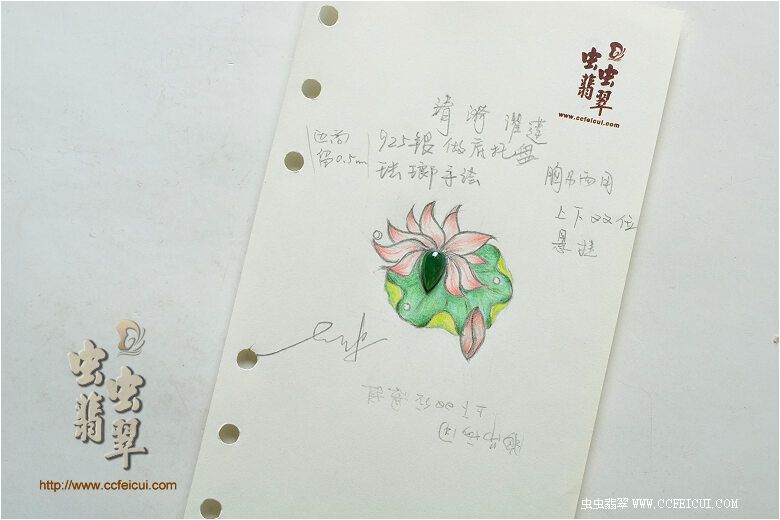 虫虫翡翠
www.ccfeicui.com
清漪濯莲
边高
留0.5m
925银做底托盘
珐琅手绘
胸吊两用
上下双位
悬挂
虫虫翡翠
http://www.ccfeicui.com
虫虫翡翠 WWW.CCFEICUI.COM